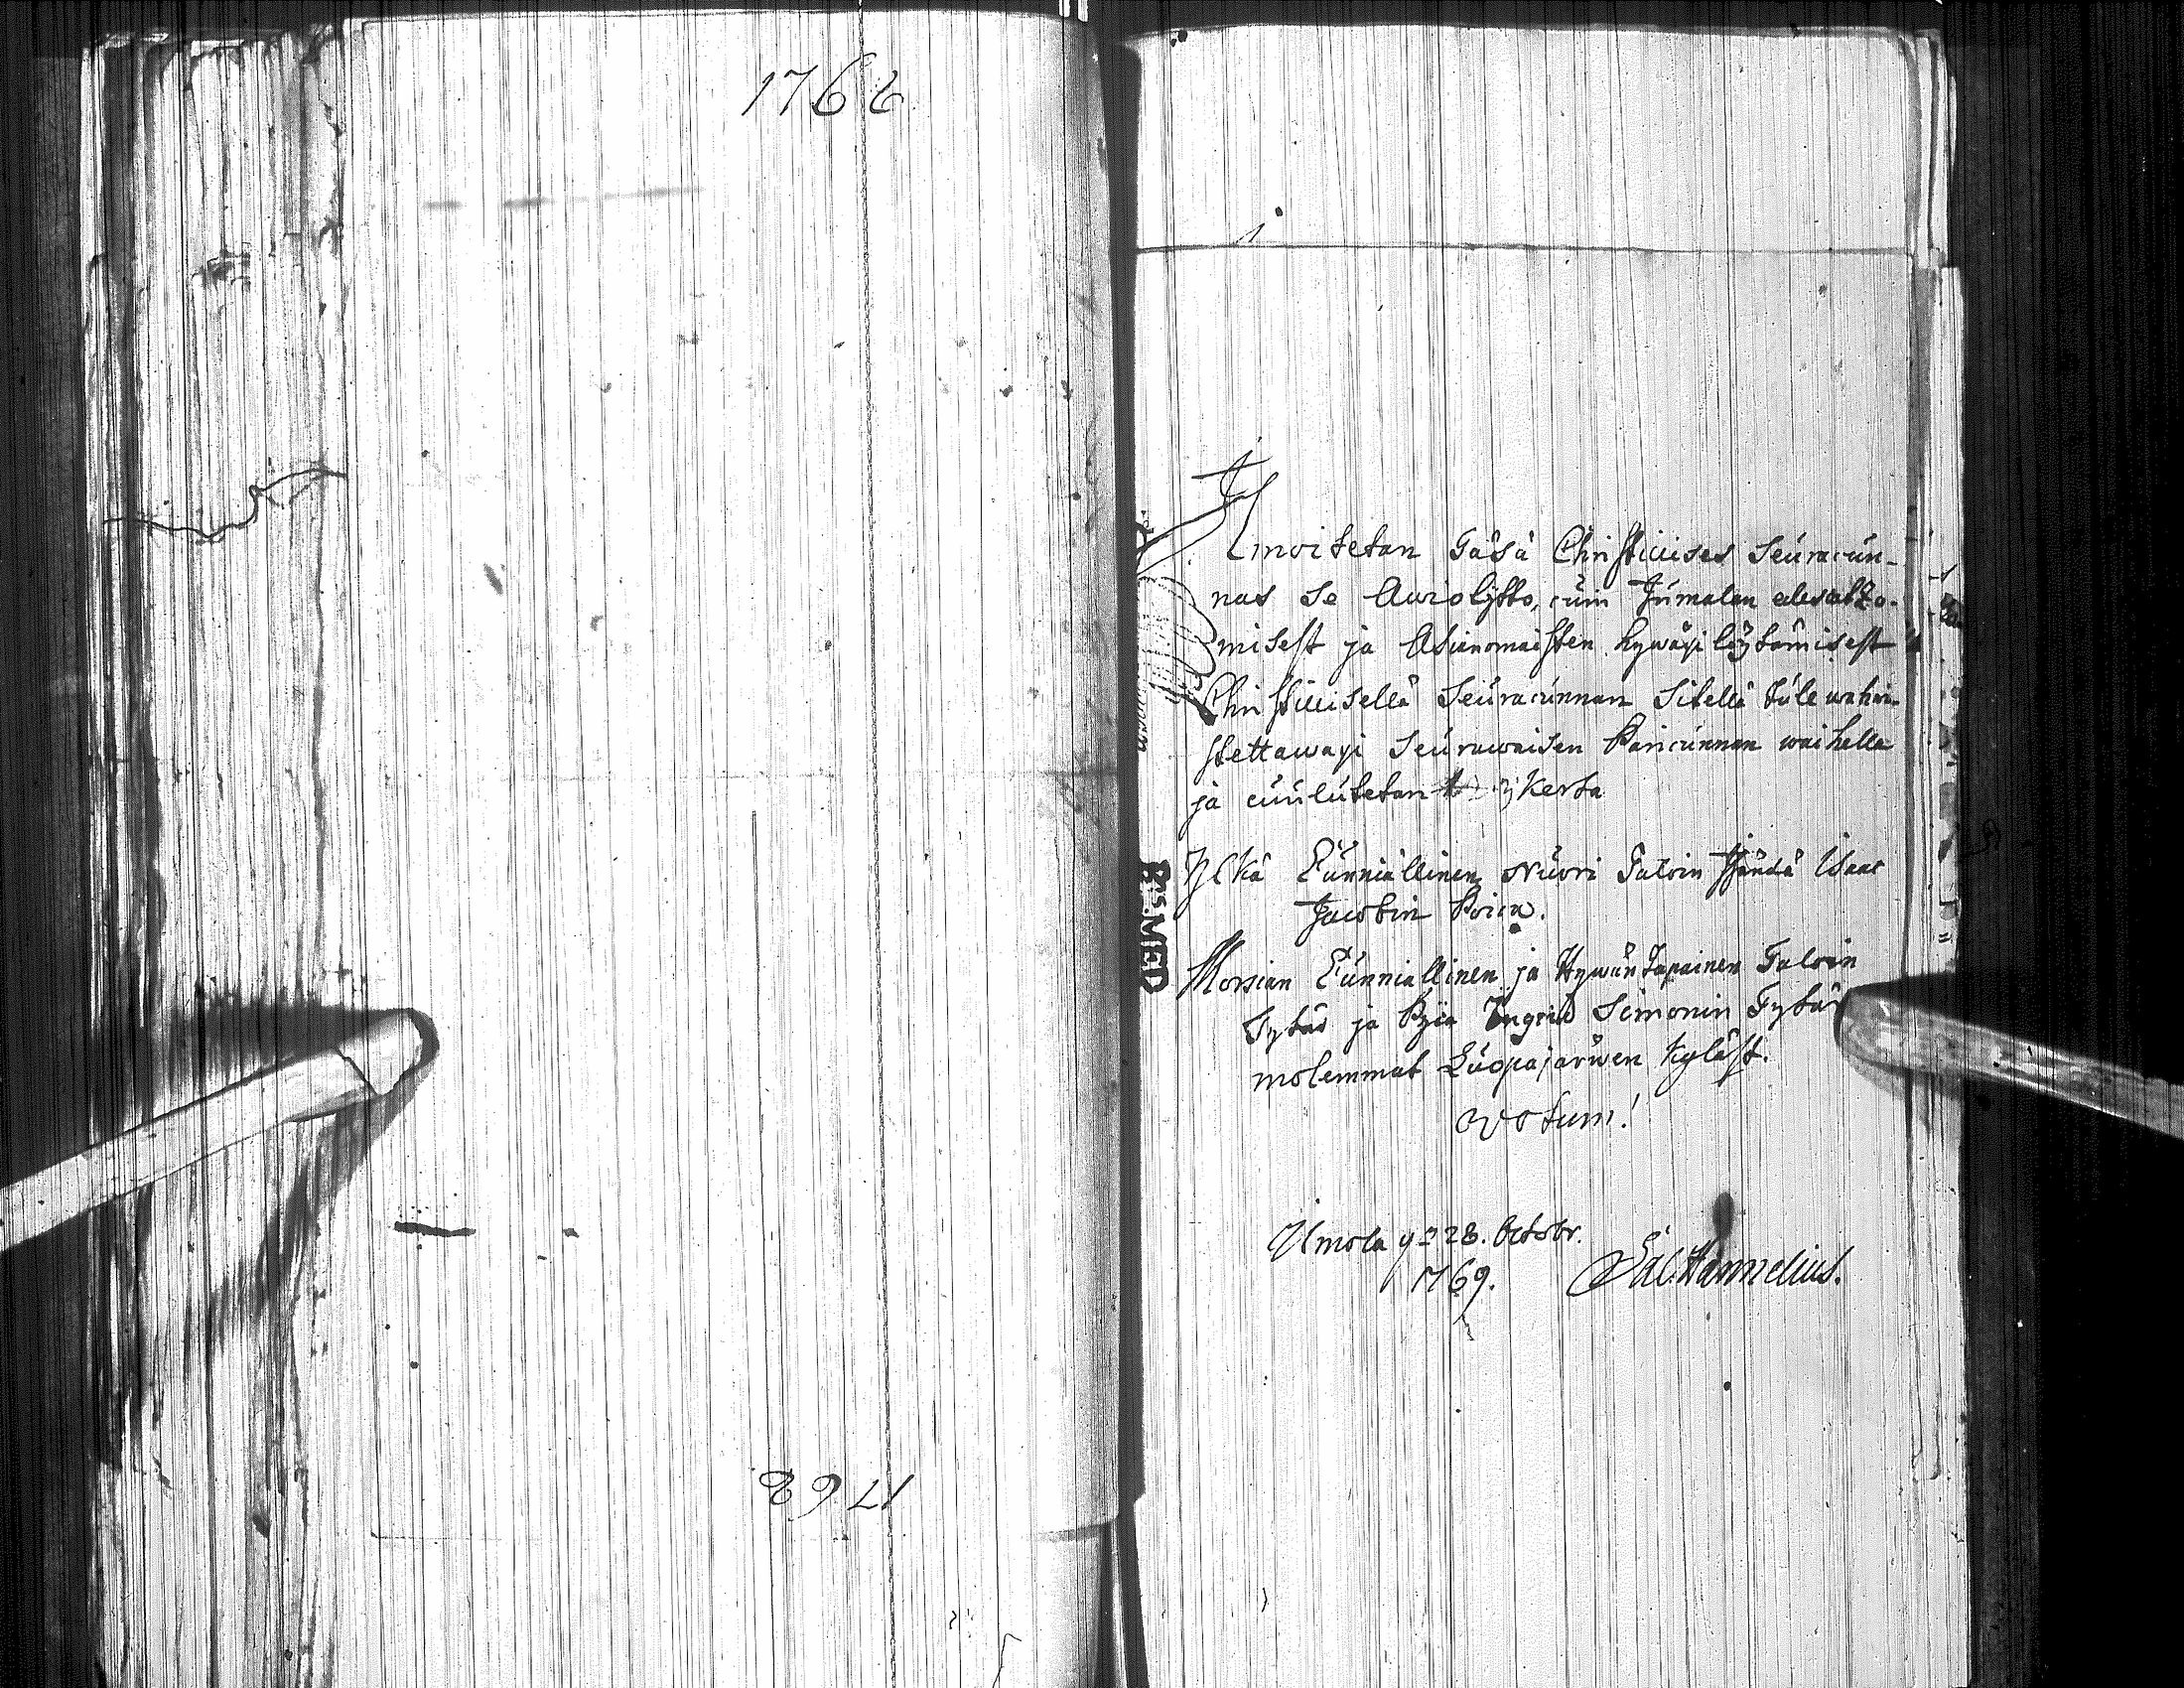 1762
1762
Ilmoitetan Täsä Christillises Seuracun-
nas se Awioliitto, cuin Jumalan edesautto-
misest ja Asianomaisten hywäxi löytämisest
Christillisellä Seuracunnan Sitellä tule wahwi-
stettawaxi seurawaisen Paricunnan waihella
ja cuulutetan kerta
Ylkä Cunniallinen Nuori Taloin Isändä Isaac
Jacobin Poica.
Morsian Cunniallinen ja Hywän Tapainen Taloin
Tytär ja Pijca Ingrid Simonin Tytär
molemmat Luopajärwen Kyläst.
Votum!
Ilmola 28. Octobr.
1769. Sal. Hannelius.